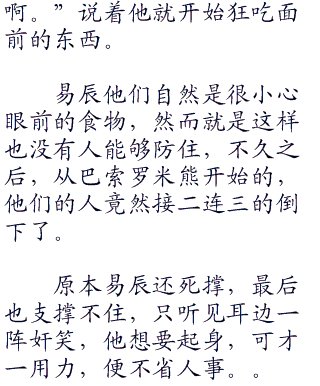 啊。”说着他就开始狂吃面
前的东西。
易辰他们自然是很小心
眼前的食物，然而就是这样
也没有人能够防住，不久之
后，从巴索罗米熊开始的，
他们的人竟然接二连三的倒
下了。
原本易辰还死撑，最后
也支撑不住，只听见耳边一
阵奸笑，他想要起身，可才
一用力，便不省人事。。